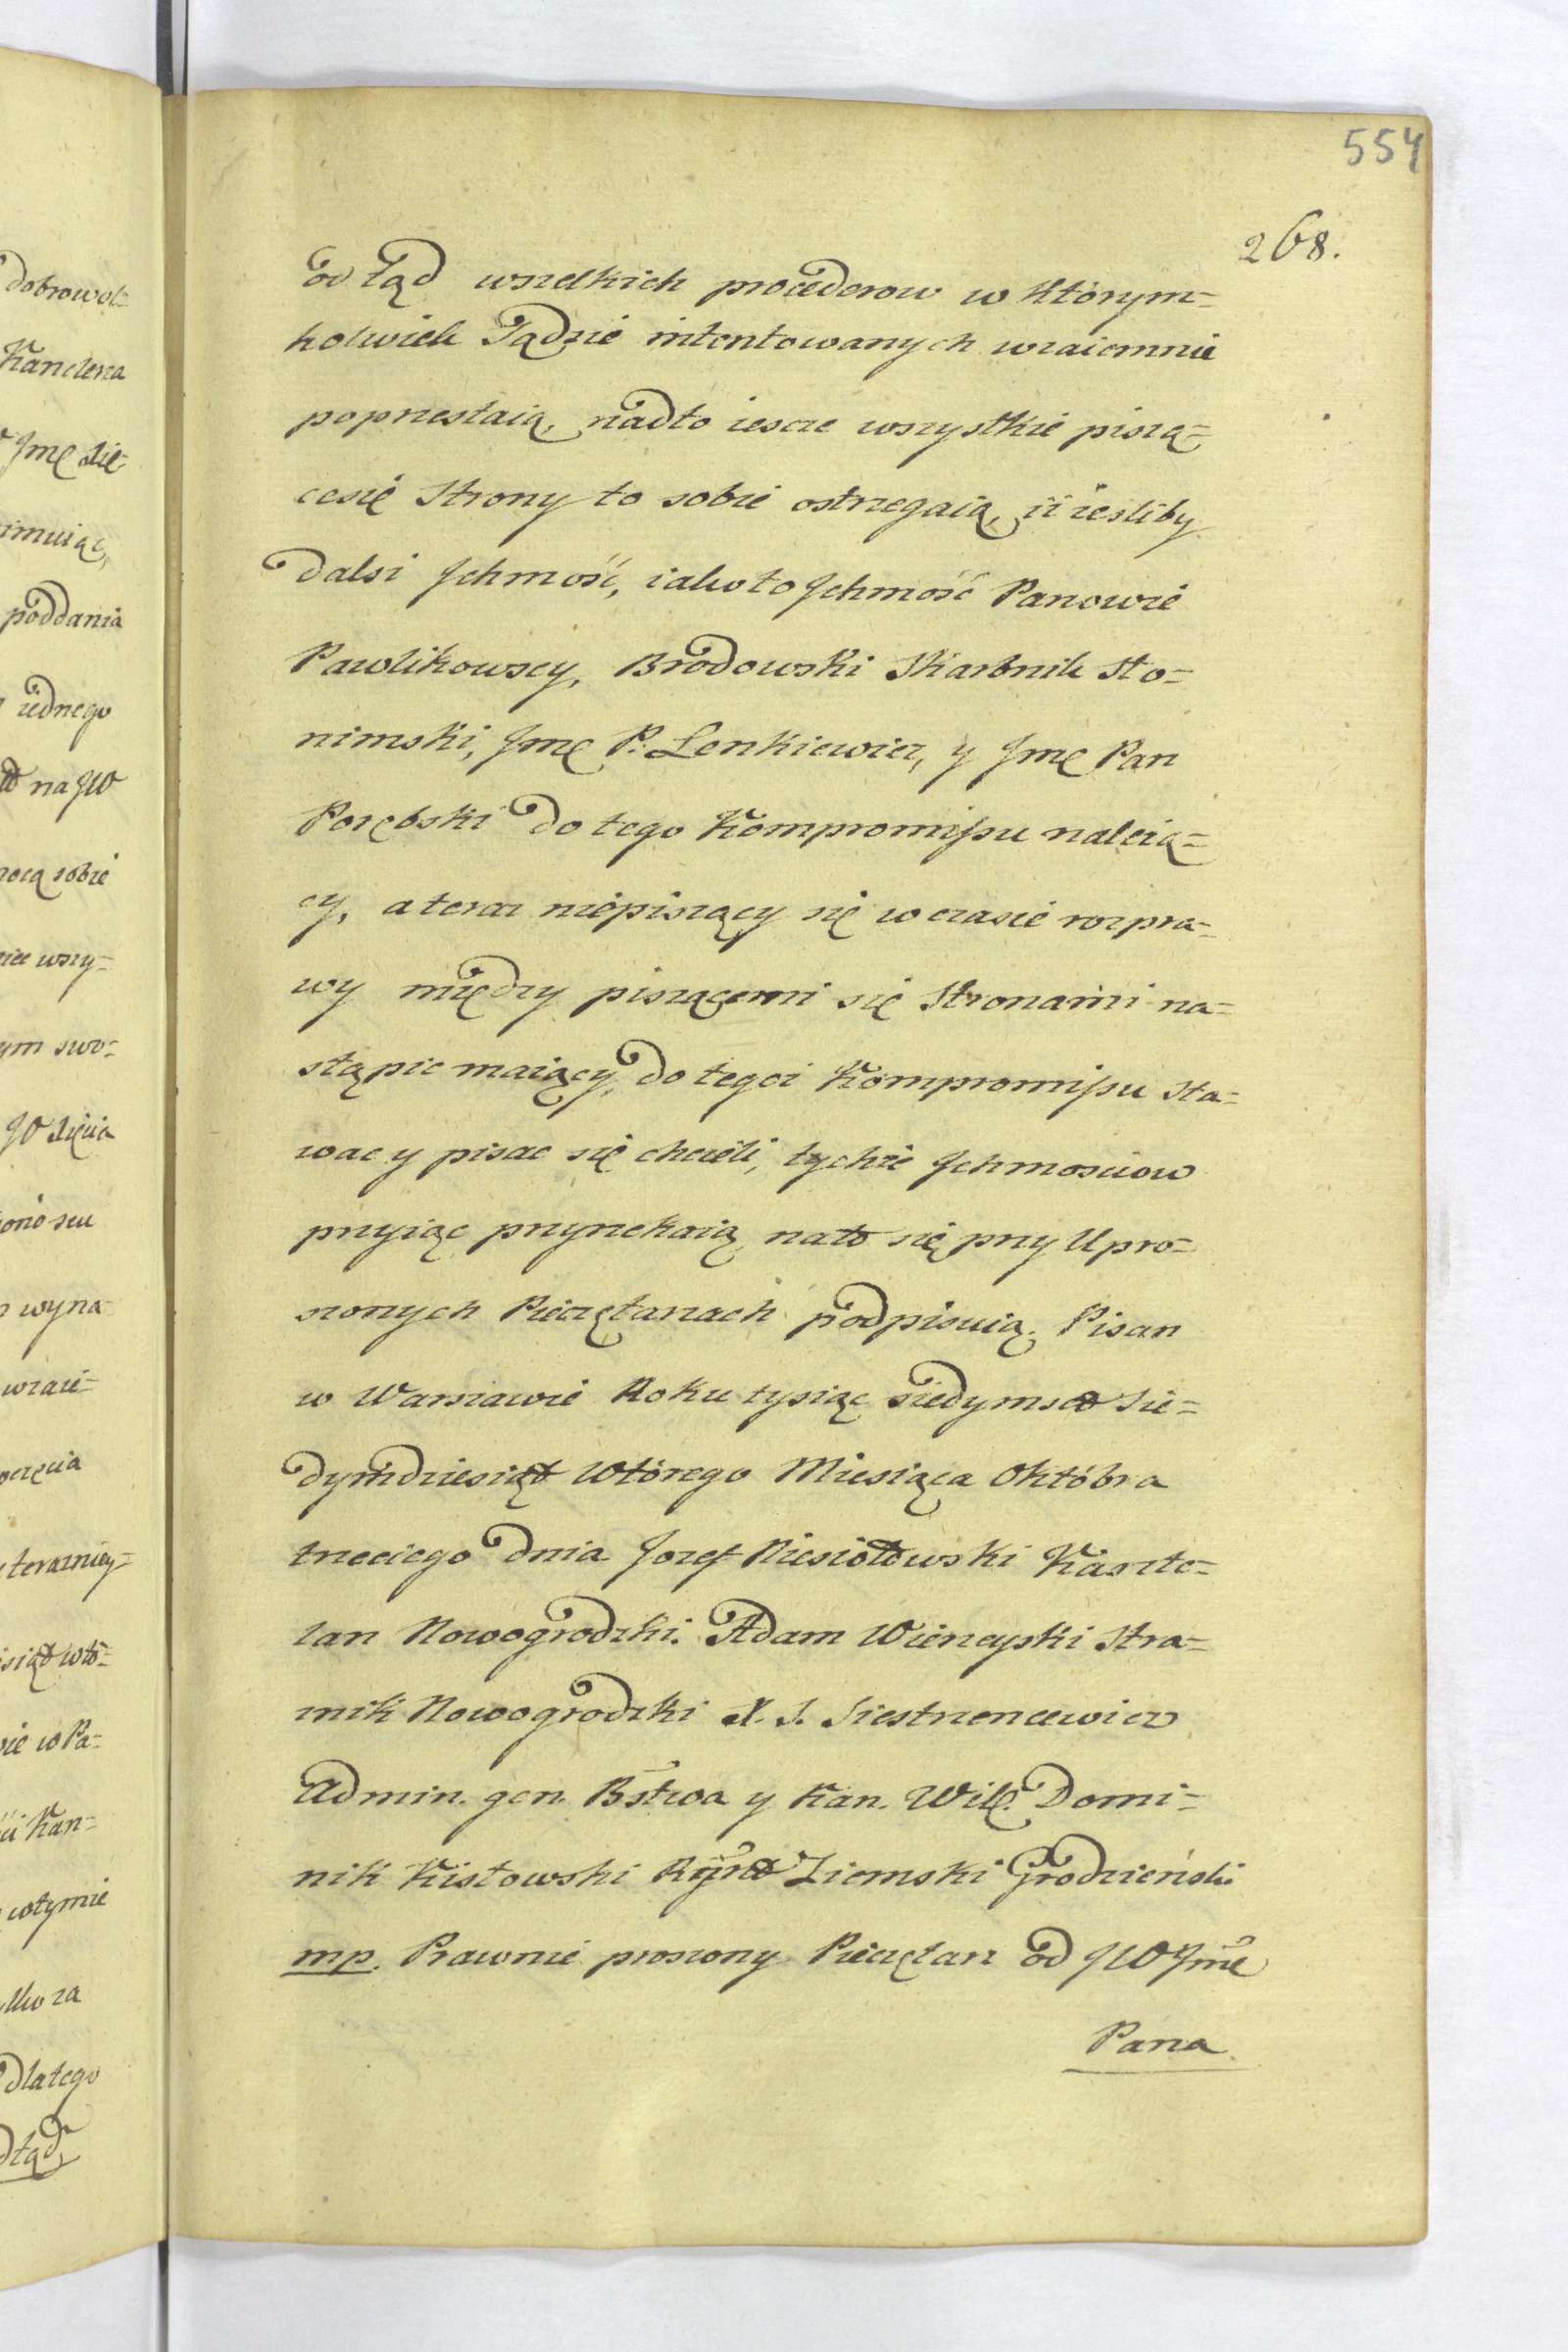 554
268.
odtąd wszelkich procederow w którym=
kolwiek Sądzie intentowanych wzaiemnie
poprzestaią, nadto iescze wszystkie piszą=
cesię Strony to sobie ostrzegaią, iż iesliby
dalsi Jchmość, iakoto Jchmość Panowie
Pawlikowscy, Brodowski Skarbnik Sło=
nimski, Jmę P. Lenkiewicz, y Jmę Pan
Porębski do tego Kompromissu należą=
cy, a teraz niepiszący się w czasie rozpra=
wy między piszącemi się Stronami na=
stąpic maiący, do tegoż Kompromissu sta=
wac y pisac się chcieli, tychże Jchmosciow
przyiąc przyrzekaią, nato się przy Upro=
szonych Pieczętarzach podpisuią. Pisan
w Warszawie Roku tysiąc siedymset sie=
dymdziesiąt wtórego Miesiąca Októbra
trzeciego dnia Jozef Niesiołowski Kaszte=
lan Nowogrodzki. Adam Wierzeyski Stra=
znik Nowogrodzki X. S. Siestrzencewicz
Admin. gen. Bstwa y Kan. Wileń. Domi=
nik Kisłowski Rgnt Ziemski Grodzieński
mp. Prawnie proszony Pieczętarz od JW Jmę
Pana
dobrowol=
Kanclerza
Jmę Xię=
imuiąc,
poddania
iednego
na JW
mocą sobie
wszy=
ym swo=
JW Xięcia
wyna
wzaie=
teraznięy=
wtó=
w Pa=
Kan=
ylko za
dlatego
odtąd